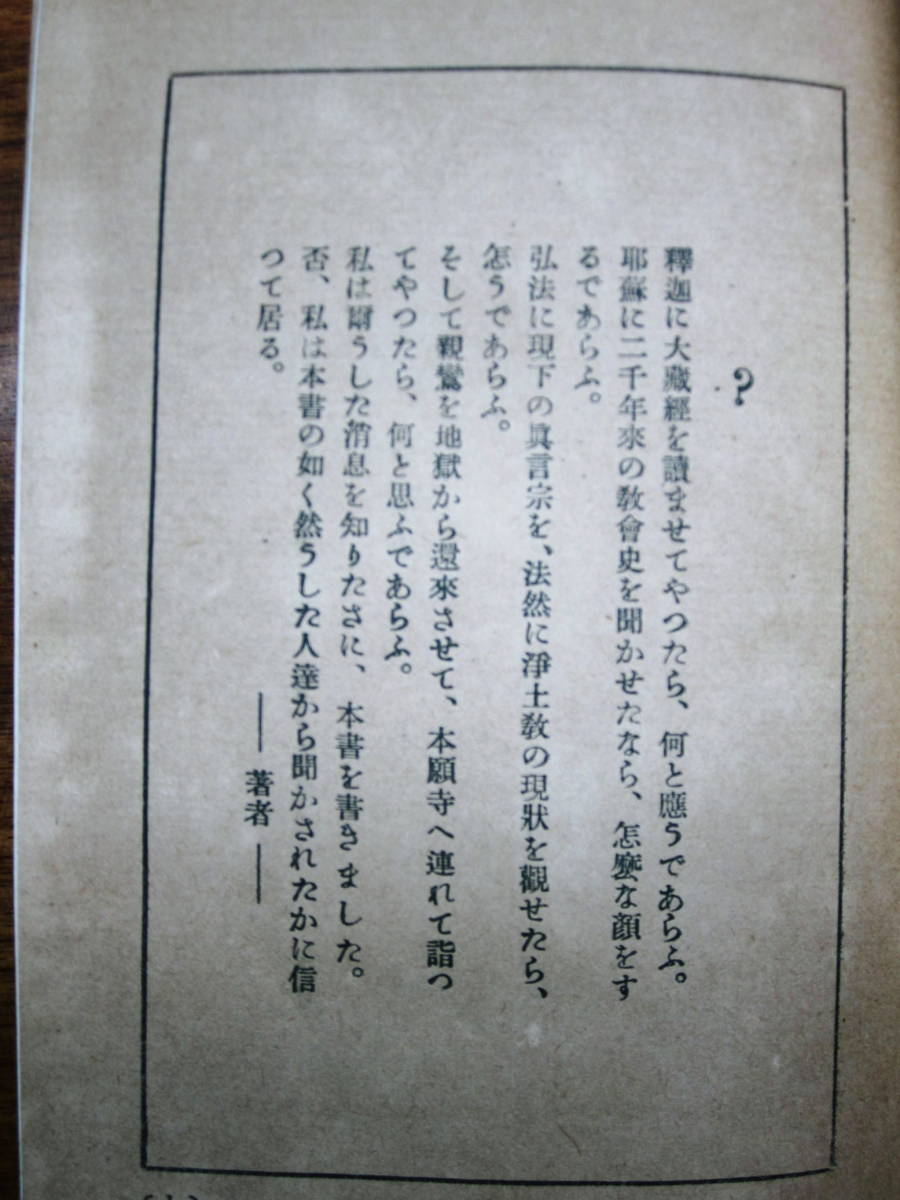 ?
釋迦に大藏經を讀ませてやつたら、何と應うであらふ。
耶蘇に二千年來の教會史を聞かせたなら、怎麼な顔をす
るであらふ。
弘法に現下の眞言宗を、法然に淨土教の現狀を觀せたら、
怎うであらふ。
そして親鸞を地獄から還來させて、本願寺へ連れて詣つ
てやつたら、何と思ふであらふ。
私は爾うした消息を知りたさに、本書を書きました。
否、私は本書の如く然うした人達から聞かされたかに信
つて居る。
――著者――